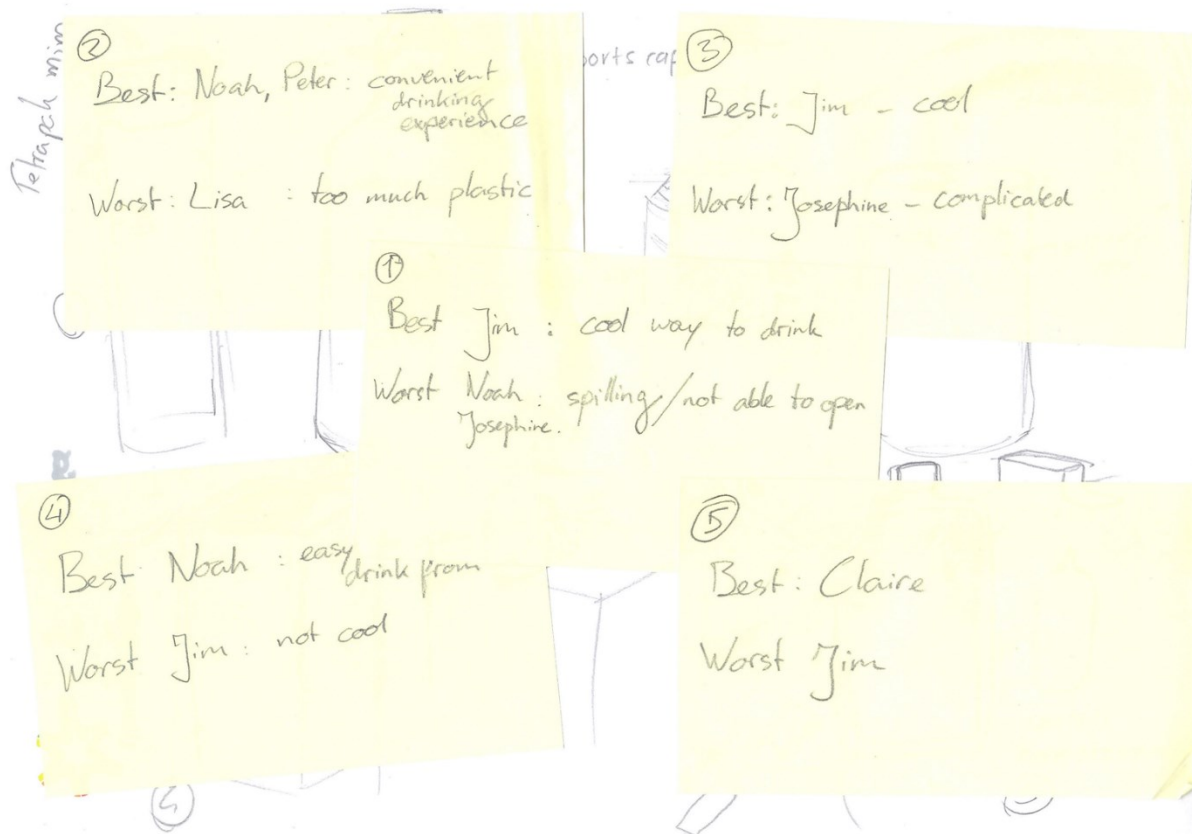 Tetrapak mim
②
Best: Noah, Peter: convenient
drinking
experience
Worst: Lisa : too much plastic
orts cap
③
Best: Jim - cool
Worst: Josephine - complicated
①
Best Jim : cool way to drink
Worst Noah : spilling/not able to open
Josephine.
④
Best Noah : easy
drink from
Worst Jim : not cool
⑤
Best: Claire
Worst Jim